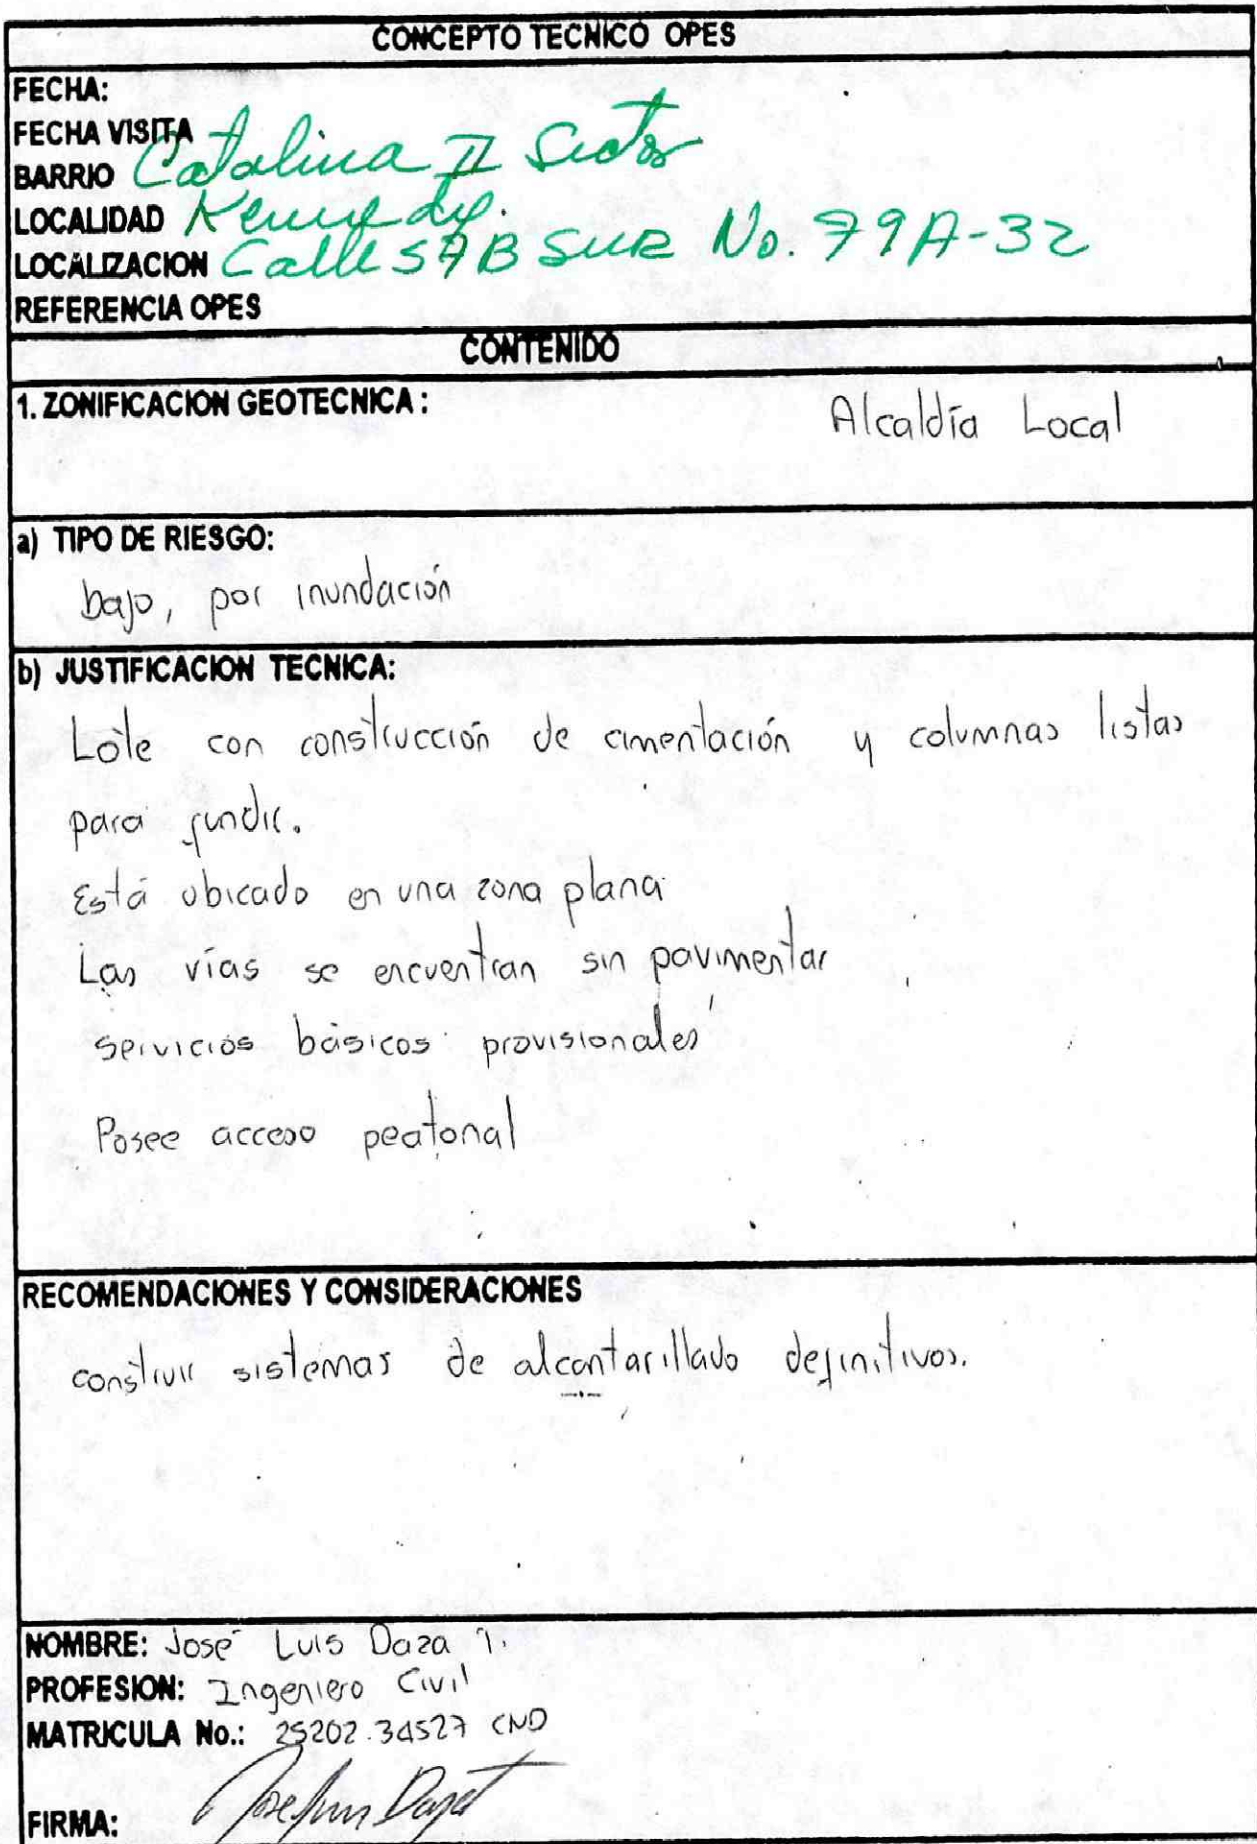 CONCEPTO TECNICO OPES
FECHA:
FECHA VISITA
BARRIO Catalina II Sector
LOCALIDAD Kennedy.
LOCALIZACION Calle 57B SUR No. 79A-32
REFERENCIA OPES
CONTENIDO
1. ZONIFICACION GEOTECNICA : Alcaldía Local
a) TIPO DE RIESGO:
bajo, por inundación
b) JUSTIFICACION TECNICA:
Lote con construcción de cimentación y columnas listas
para fundir.
Está ubicado en una zona plana
Las vías se encuentran sin pavimentar
servicios básicos provisionales
Posee acceso peatonal
RECOMENDACIONES Y CONSIDERACIONES
construir sistemas de alcantarillado definitivos.
NOMBRE: José Luis Daza T.
PROFESION: Ingeniero Civil
MATRICULA No.: 25202.34527 CND
FIRMA: Jose Luis Daza T